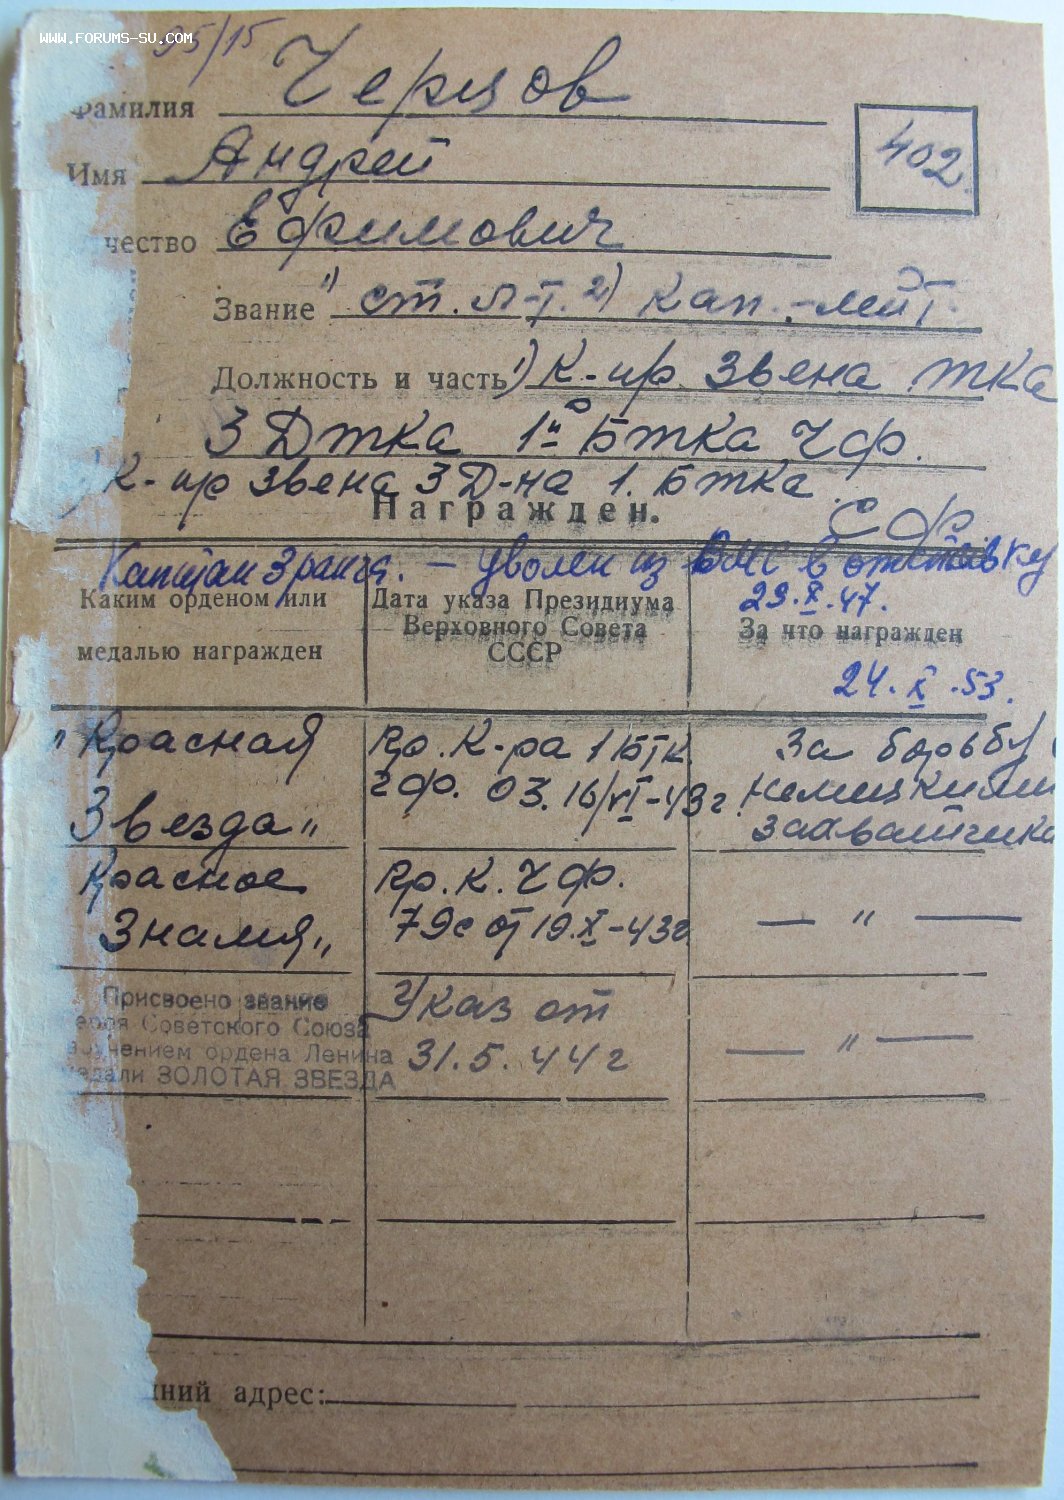 WWW.FORUMS-SU.COM
95/15
Фамилия Черцов
402
Имя Андрей
чество Ефимович
Звание 1) ст. л-т. 2) кап.-лейт.
Должность и часть 1) К-ир звена тка
3 Дтка 1й Бтка ЧФ.
К-ир звена 3 Д-на 1. Бтка.
СФ
Награжден.
Капитан 3 ранга. — уволен из ВМС в отставку
29.X.47.
Каким орденом или медалью награжден
Дата указа Президиума Верховного Совета СССР
За что награжден
24.X.53.
"Красная Звезда"
Пр. К-ра 1 Бтк ЧФ. 03. 16/VI-43г.
За борьбу с немецкими захватчика
Красное Знамя"
Пр. К. ЧФ. 79с от 19.X-43г
— " —
Присвоено звание
ероя Советского Союза
учением ордена Ленина
едали ЗОЛОТАЯ ЗВЕЗДА
Указ от 31.5.44г
— " —
ний адрес: